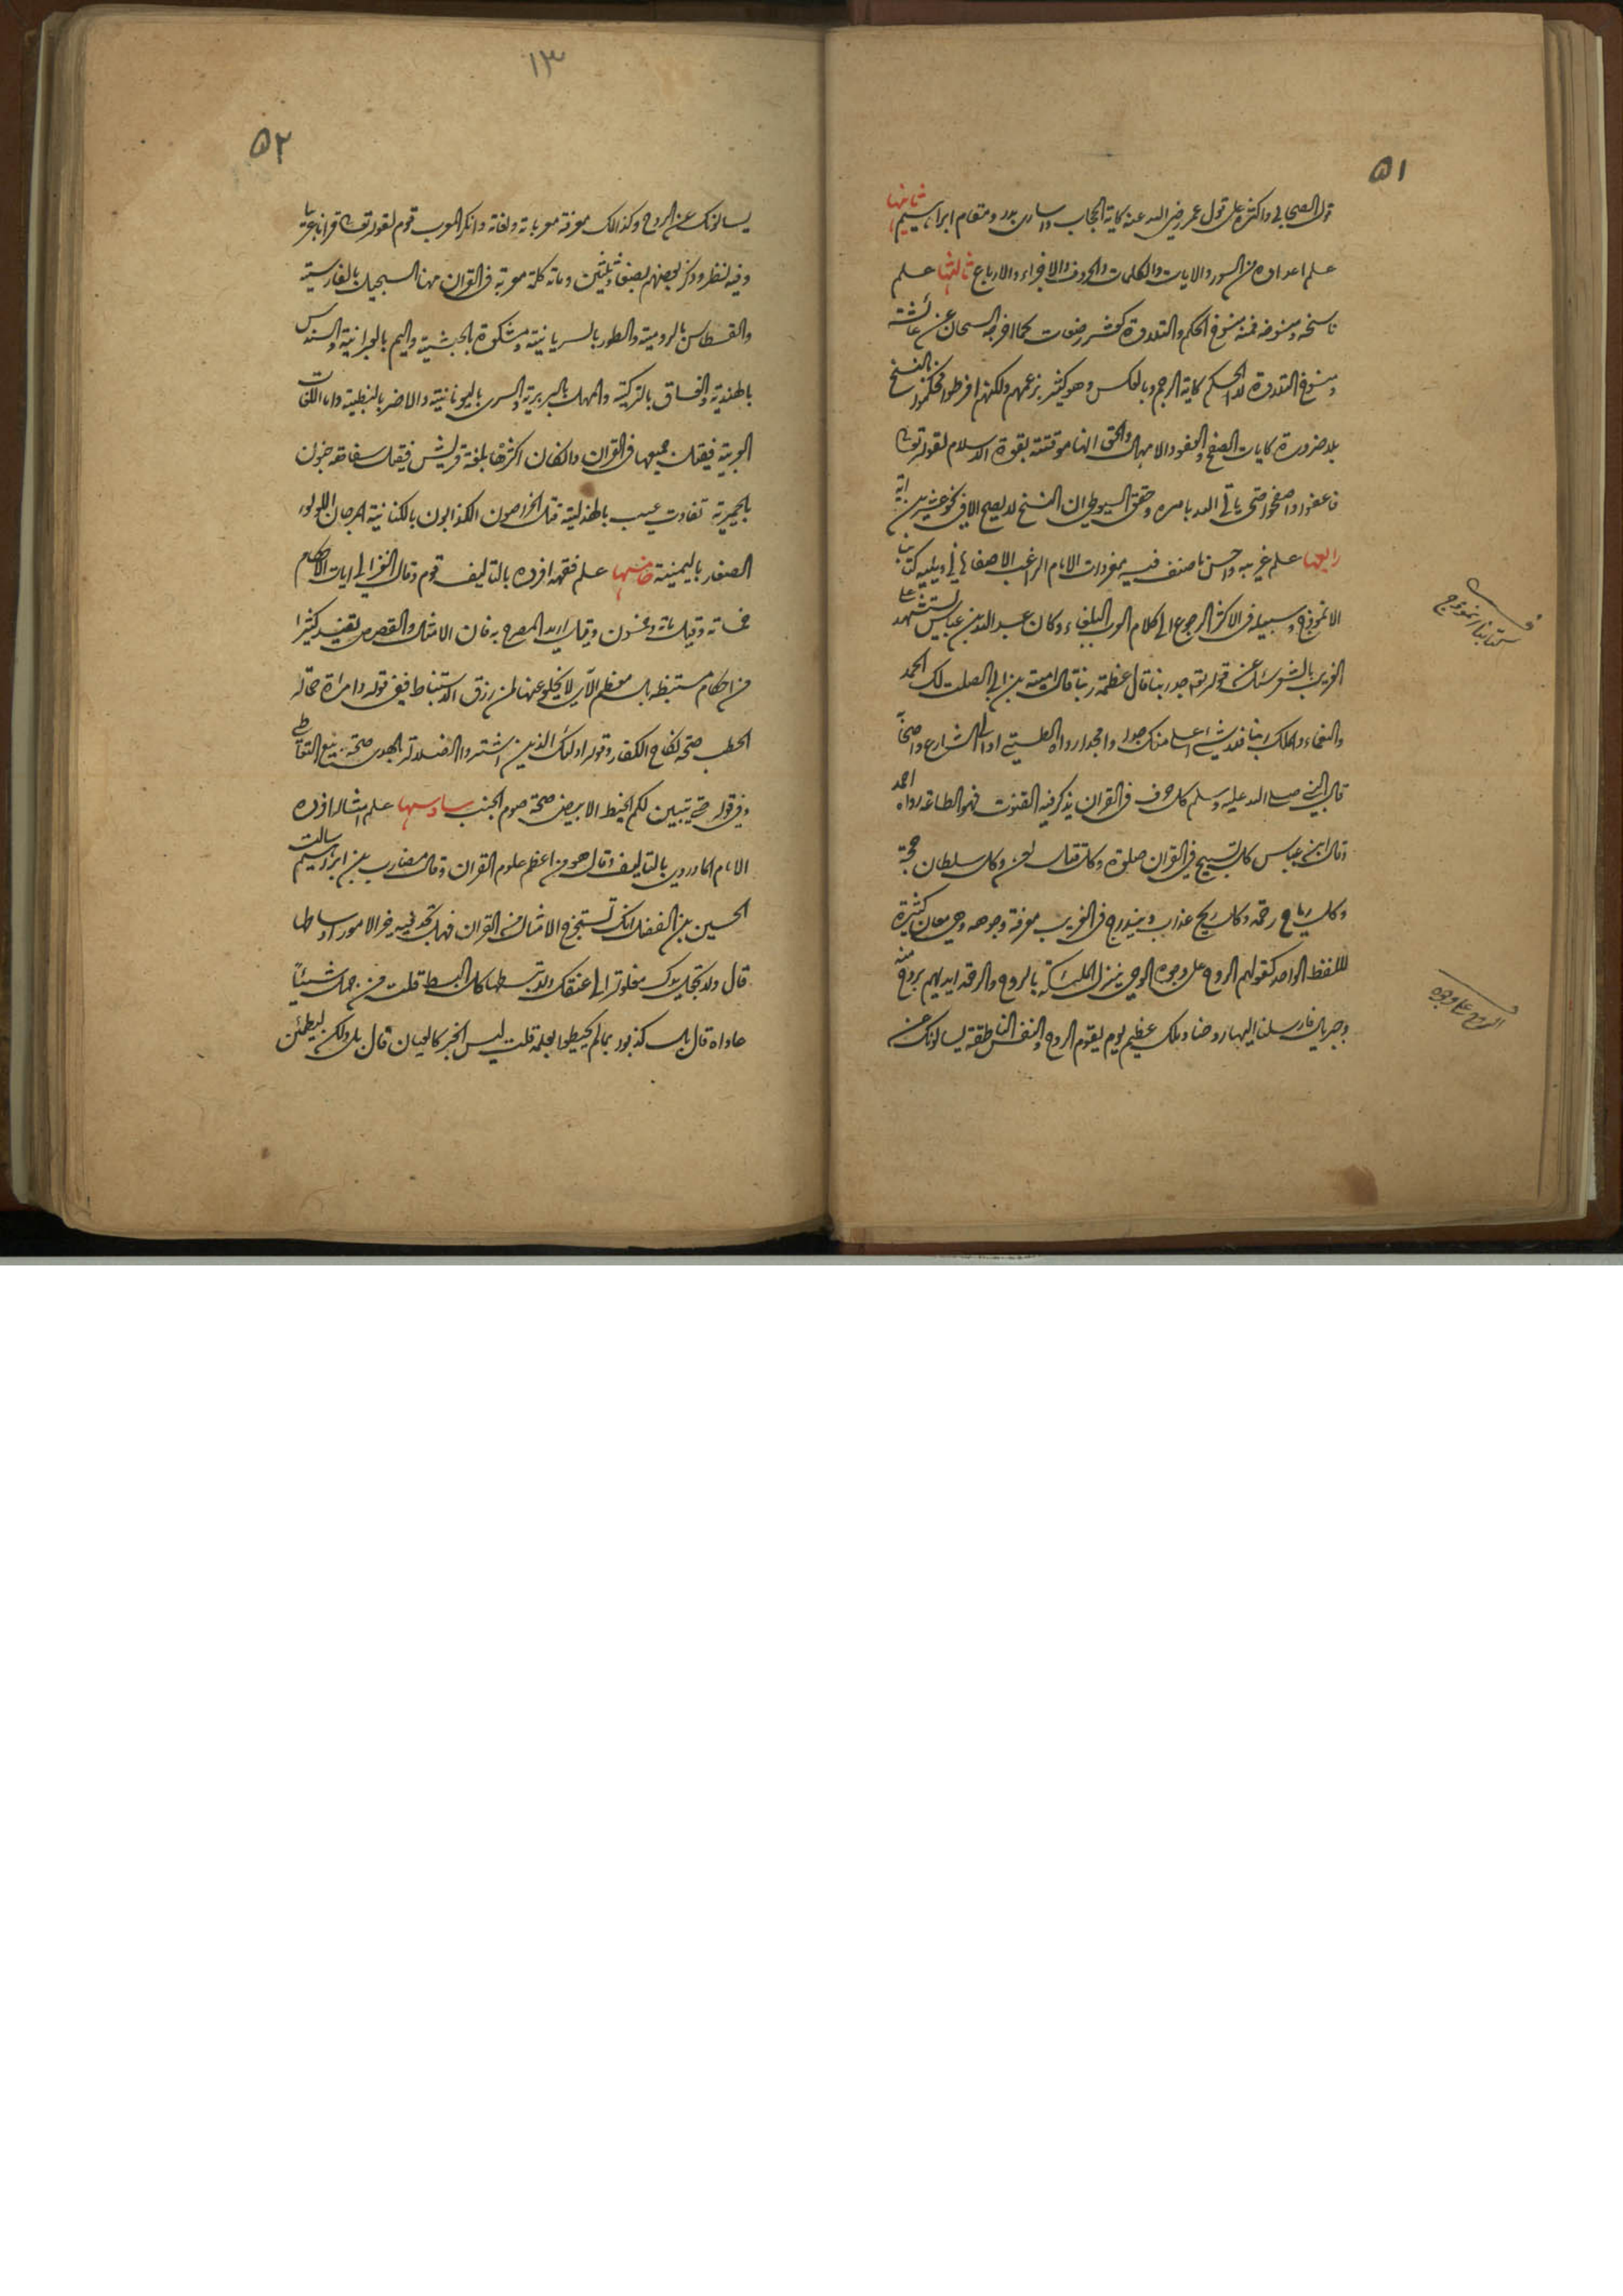 ٥١
قول الصحابي واكثره على قول عمر رضي الله عنه كاية الحجاب واسارى بدر ومقام ابراهيم ثانيها
علم اعداده من السور والايات والكلمات والحروف والاجزاء والارباع ثالثها علم
ناسخه ومنسوخه فمنه منسوخ الحكم والتلاوة كعشر رضعات كما اخرجه الشيخان عن عائشة
ومنسوخ التلاوة لا الحكم كاية الرجم وبالعكس وهو كثير بزعمهم ولكنهم افرطوا فحكموا بالنسخ
بلا ضرورة كايات الصفح والعفو والامهال والحق انها موقتة بقوة الاسلام لقوله تعالى
فاعفوا واصفحوا حتى ياتي الله بامره وحقق السيوطي ان النسخ لا يصح الا في نحو عشرين اية
رابعها علم غريبه واحسن ما صنف فيه مفردات الامام الراغب الاصفهاني ويليه كتابنا
الانموذج وسبيله في الاكثر الرجوع الى كلام العرب البلغاء وكان عبد الله بن عباس يستشهد على
الغريب بالشعر سئل عن قوله تعالى جد ربنا قال عظمة ربنا قال امية بن ابي الصلت لك الحمد
والنعماء والملك ربنا فلا شيء اعلى منك جدا وامجدا رواه الطستي او الى الشارع واضحا
قال النبي صلى الله عليه وسلم كل حرف في القران يذكر فيه القنوت فهو الطاعة رواه احمد
وقال ابن عباس كل تسبيح في القران صلوة وكل قتل لعن وكل سلطان حجة
وكل رياح رحمة وكل ريح عذاب ويندرج في الغريب معرفة وجوهه وهي معان كثيرة
للفظ الواحد كقولهم الروح على وجوه الوحي ينزل الملئكة بالروح والرحمة ايدهم بروح منه
وجبريل فارسلنا اليها روحنا وملك عظيم يوم يقوم الروح والنفس الناطقة يسالونك عن
كتابنا انموذج
الروح على وجوه
١٣
٥٢
يسالونك عن الروح وكذالك معرفة معرباته ولغاته وانكر المعرب قوم لقوله تعالى قرانا عربيا
وفيه نظر وذكر بعضهم بضعا وثلثين ومائة كلمة معربة في القران منها السجيل بالفارسية
والقسطاس بالرومية والطور بالسريانية ومشكوة بالحبشية واليم بالعبرانية والسندس
بالهندية والغساق بالتركية والمهل بالبربرية والسرى باليونانية والاصر بالنبطية واما اللغات
العربية فيقال جميعها في القران وان كان اكثرها بلغة قريش فيقال سفاهة جنون
بالحميرية تفاوت عيب بالهذلية قتل الخراصون الكذابون بالكنانية المرجان اللولو
الصغار باليمنية خامسها علم فقهه افرده بالتاليف قوم وقال الغزالي ايات الاحكام
خمسمائة وقيل مائة وخمسون وقيل اريد المصرح به فان الامثال والقصص يفيد كثيرا
من احكام مستنبطة بل معظم الآي لا يخلو عنها لمن رزق الاستنباط ففي قوله وامراته حمالة
الحطب صحة نكاح الكفار وقوله اولئك الذين اشتروا الضلالة بالهدى صحة بيع التعاطي
وفي قوله حتى يتبين لكم الخيط الابيض صحة صوم الجنب سادسها علم امثاله افرده
الامام الماوردي بالتاليف وقال هو من اعظم علوم القران وقال مضارب بن ابراهيم سالت
الحسين بن الفضل انك تستخرج الامثال من القران فهل تجد فيه خير الامور اوساطها
قال ولا تجعل يدك مغلولة الى عنقك ولا تبسطها كل البسط قلت من جهل شيئا
عاداه قال بل كذبوا بما لم يحيطوا بعلمه قلت ليس الخبر كالعيان قال بلى ولكن ليطمئن